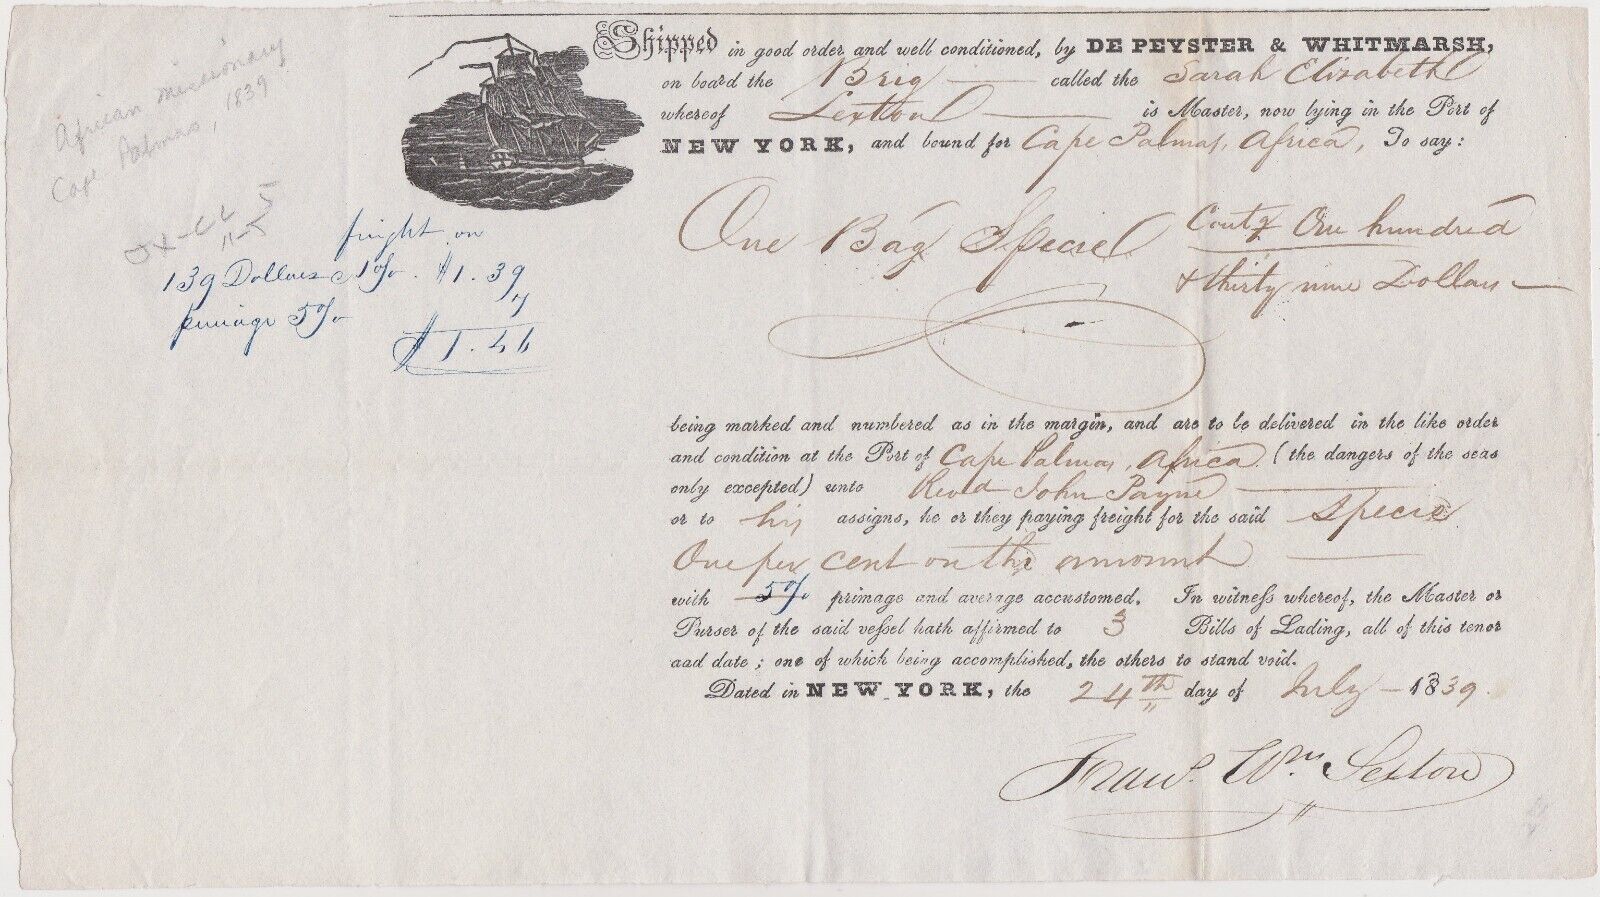 African missionary
Cape Palmas, 1839
freight on
139 Dollars 1%. $1.39
primage 5% 7
$1.46
Shipped in good order and well conditioned, by DE PEYSTER & WHITMARSH,
on board the Brig called the Sarah Elizabeth
whereof Sexton is Master, now lying in the Port of
NEW YORK, and bound for Cape Palmas, Africa, To say:
One Bag Specie Contg One hundred
& thirty nine Dollars
being marked and numbered as in the margin, and are to be delivered in the like order
and condition at the Port of Cape Palmas, Africa (the dangers of the seas
only excepted) unto Revd John Payne
or to his assigns, he or they paying freight for the said Specie
One per cent on the amount
with 5% primage and average accustomed. In witneſs whereof, the Master or
Purser of the said veſsel hath affirmed to 3 Bills of Lading, all of this tenor
aad date; one of which being accomplished, the others to stand void.
Dated in NEW-YORK, the 24th day of July - 1839.
Wm Sexton